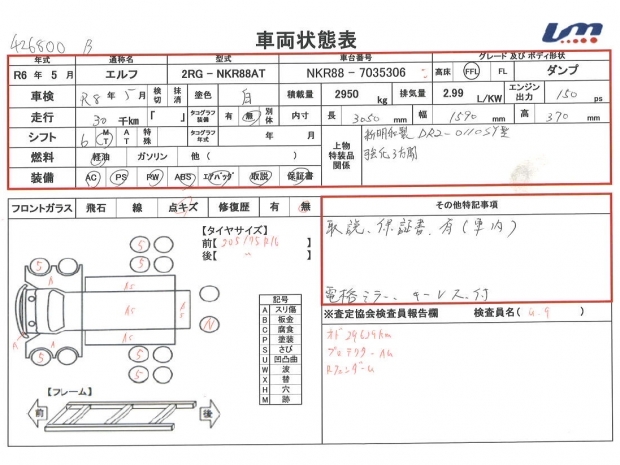 426800 B
車両状態表
年式 通称名 型式 車台番号 グレード及びボディ形状
R6 年 5 月 エルフ 2RG - NKR88AT NKR88 - 7035306 高床 FFL FL ダンプ
車検 R8 年 5 月 検切 抹消 塗色 白 積載量 2950 kg 排気量 2.99 L/KW エンジン出力 150 ps
走行 30 千km 「 」 タコグラフ装備 有 無 別体 内寸 長 3050 mm 幅 1590 mm 高 370 mm
シフト 6 MT AT 特殊 タコグラフ年式 年 月 上物特装品関係 新明和製 DR2-0110SY型
燃料 軽油 ガソリン 他 ( ) 強化3方開
装備 AC PS PW ABS エアバッグ 取説 保証書
フロントガラス 飛石 線 点キズ 修復歴 有 無 その他特記事項
【タイヤサイズ】 取説、保証書、有(車内)
前【205/75R16】
後【 〃 】
電格ミラー、キーレス、付
記号
A スリ傷
B 板金
C 腐食
P 塗装
S さび
U 凹凸曲
W 波
X 替
H 穴
M 跡
※査定協会検査員報告欄 検査員名( )
オド29629km
プロテクターAU
RフェンダーU
5 5
5 5
5 5
A A
A5 A5 A5
A5
N
【フレーム】
前 後